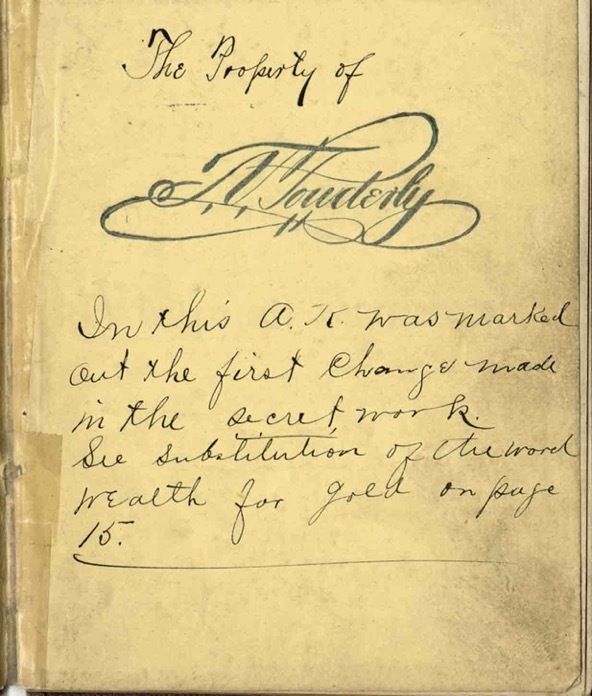 The Property of
T. V. Powderly
In this A. K. was marked
out the first change made
in the secret work.
See substitution of the word
wealth for gold on page
15.